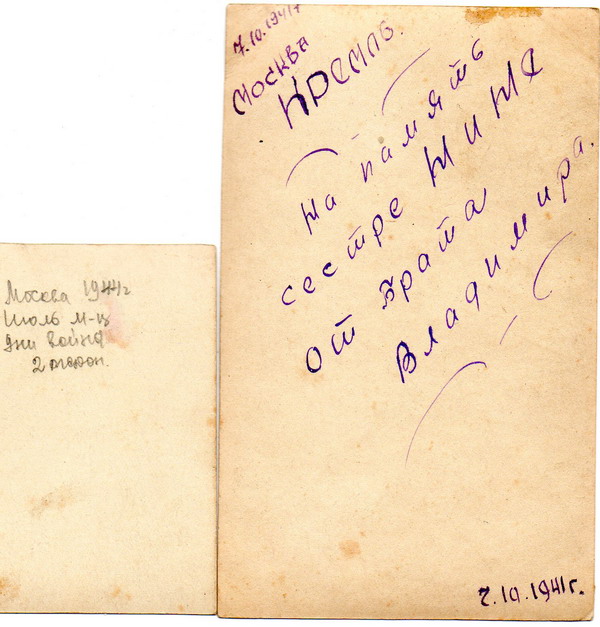 Москва 1944г
Июль м-ц
дни война
7.10.1941г
Москва
Кремль.
На память
сестре Нине
от брата
Владимира.
7.10.1941г.